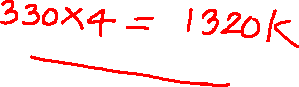 330×4 = 1320K